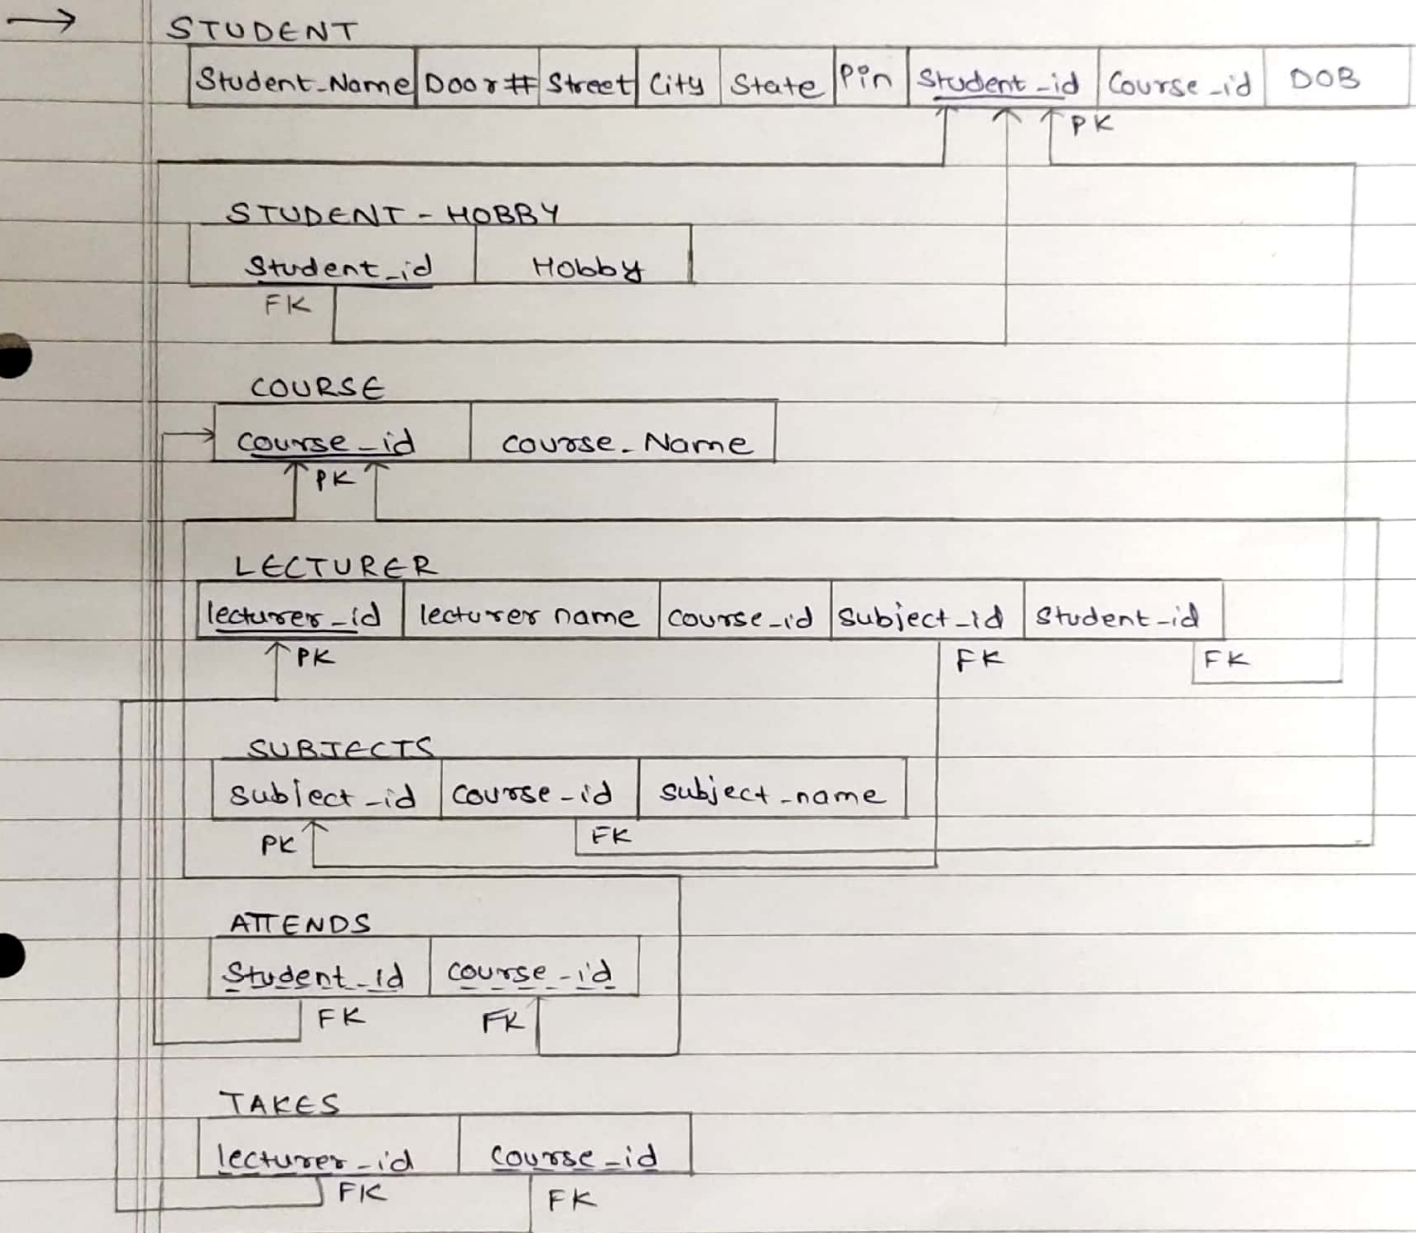 → STUDENT
Student_Name Door# Street City State Pin Student_id Course_id DOB
PK
STUDENT - HOBBY
Student_id Hobby
FK
COURSE
course_id course_Name
PK
LECTURER
lecturer_id lecturer name course_id subject_id student_id
PK FK FK
SUBJECTS
subject_id course_id subject_name
PK FK
ATTENDS
Student_id course_id
FK FK
TAKES
lecturer_id course_id
FK FK